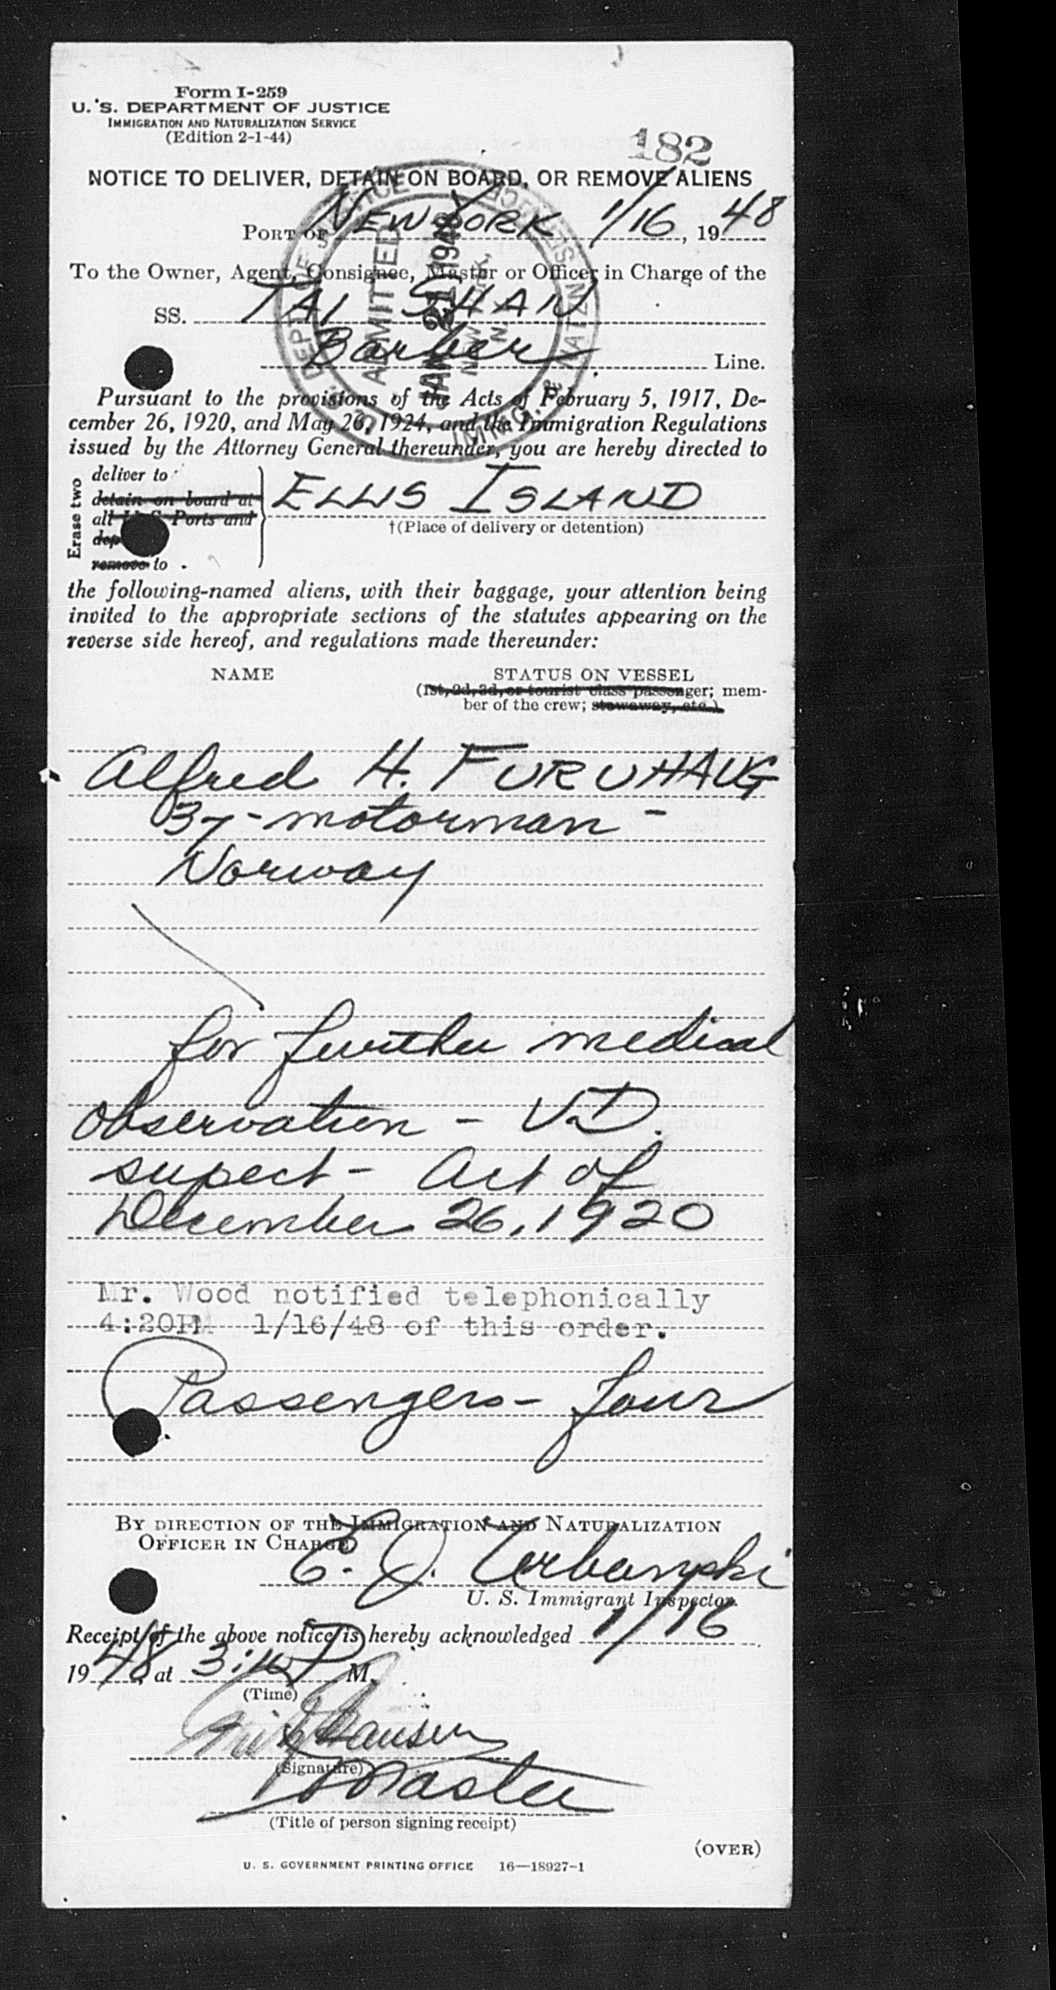 Form I-259
U. S. DEPARTMENT OF JUSTICE
IMMIGRATION AND NATURALIZATION SERVICE
(Edition 2-1-44)
182
NOTICE TO DELIVER, DETAIN ON BOARD, OR REMOVE ALIENS
PORT OF NEW YORK 1/16, 1948
To the Owner, Agent, Consignee, Master or Officer in Charge of the
SS. TAI SHAN
Barber Line.
U. S. DEPT. OF JUSTICE IMMIG. & NATZN. SERVICE
ADMITTED
JAN 21 1948
NEW YORK, N.
Pursuant to the provisions of the Acts of February 5, 1917, De-
cember 26, 1920, and May 26, 1924, and the Immigration Regulations
issued by the Attorney General thereunder, you are hereby directed to
Erase two
deliver to
detain on board at
all U S Ports and
dep
remove to
ELLIS ISLAND
†(Place of delivery or detention)
the following-named aliens, with their baggage, your attention being
invited to the appropriate sections of the statutes appearing on the
reverse side hereof, and regulations made thereunder:
NAME STATUS ON VESSEL
(1st, 2d, 3d, or tourist class passenger; mem-
ber of the crew; stowaway, etc.)
Alfred H. FURUHAUG
37 - motorman -
Norway
for further medical
observation - V.D.
supect - Act of
December 26, 1920
Mr. Wood notified telephonically
4:20PM 1/16/48 of this order.
Passengers - four
BY DIRECTION OF THE IMMIGRATION AND NATURALIZATION
OFFICER IN CHARGE
E. J. Urbanski
U. S. Immigrant Inspector.
Receipt of the above notice is hereby acknowledged 1/16
1948, at 3: P M.
(Time)
Hansen
(Signature)
Master
(Title of person signing receipt)
(OVER)
U. S. GOVERNMENT PRINTING OFFICE 16—18927-1